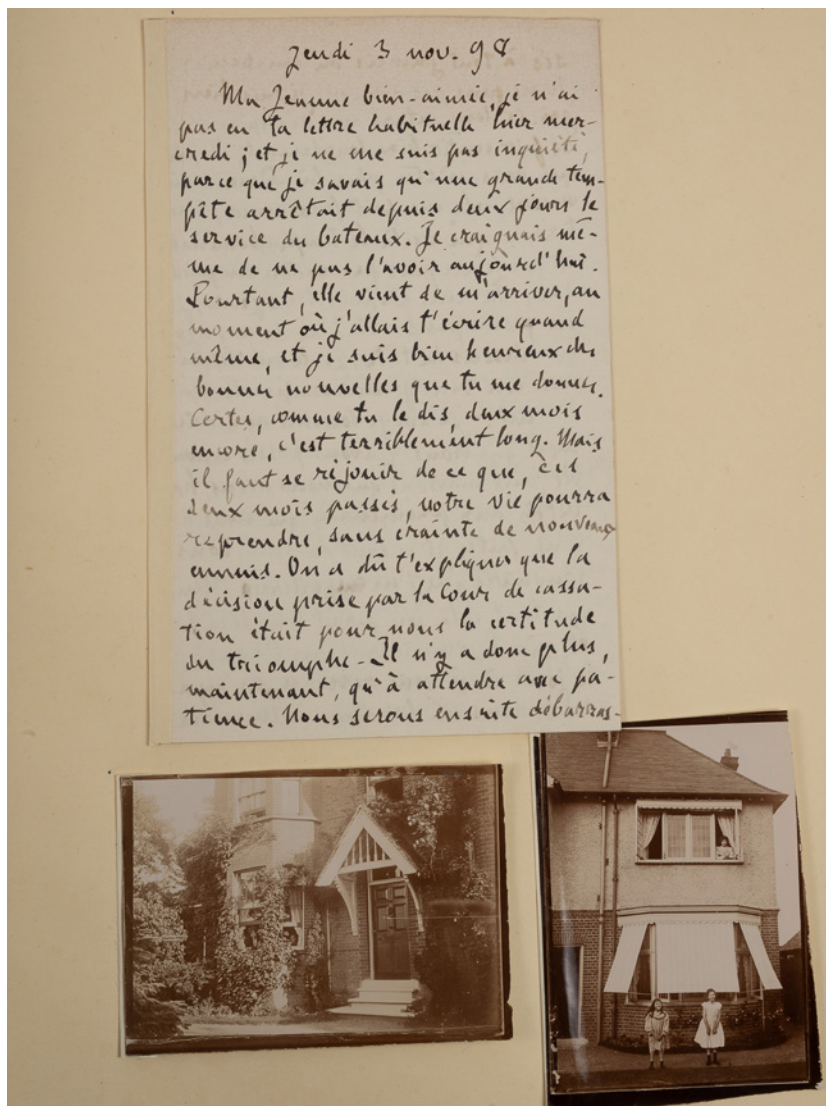 Jeudi 3 nov. 98
Ma Jeanne bien-aimée, je n'ai
pas eu ta lettre habituelle hier mer-
credi ; et je ne me suis pas inquiété,
parce que je savais qu'une grande tem-
pête arrêtait depuis deux jours le
service du bateaux. Je craignais mê-
me de ne pas l'avoir aujourd'hui.
Pourtant, elle vient de m'arriver, au
moment où j'allais t'écrire quand
même, et je suis bien heureux des
bonnes nouvelles que tu me donnes.
Certes, comme tu le dis, deux mois
encore, c'est terriblement long. Mais
il faut se réjouir de ce que, ces
deux mois passés, notre vie pourra
reprendre, sans crainte de nouveaux
ennuis. On a dû t'expliquer que la
décision prise par la Cour de cassa-
tion était pour nous la certitude
du triomphe. Il n'y a donc plus,
maintenant, qu'à attendre avec pa-
tience. Nous serons ensuite débarras-